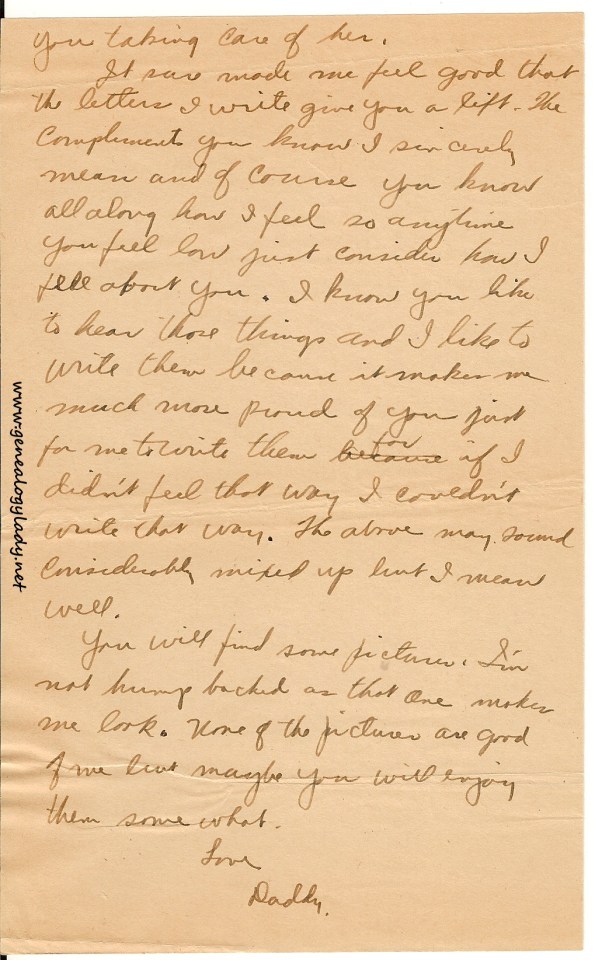 you taking care of her.
It sure made me feel good that
the letters I write give you a lift - The
compliments you know I sincerely
mean and of course you know
all along how I feel so anytime
you feel low just consider how I
feel about you. I know you like
to hear those things and I like to
write them because it makes me
much more proud of you just
for me to write them ~~because~~ for if I
didn't feel that way I couldn't
write that way. The above may sound
considerably mixed up but I mean
well.
You will find some pictures. I'm
not hump backed as that one makes
me look. None of the pictures are good
of me but maybe you will enjoy
them somewhat.
Love
Daddy.
www.genealogylady.net